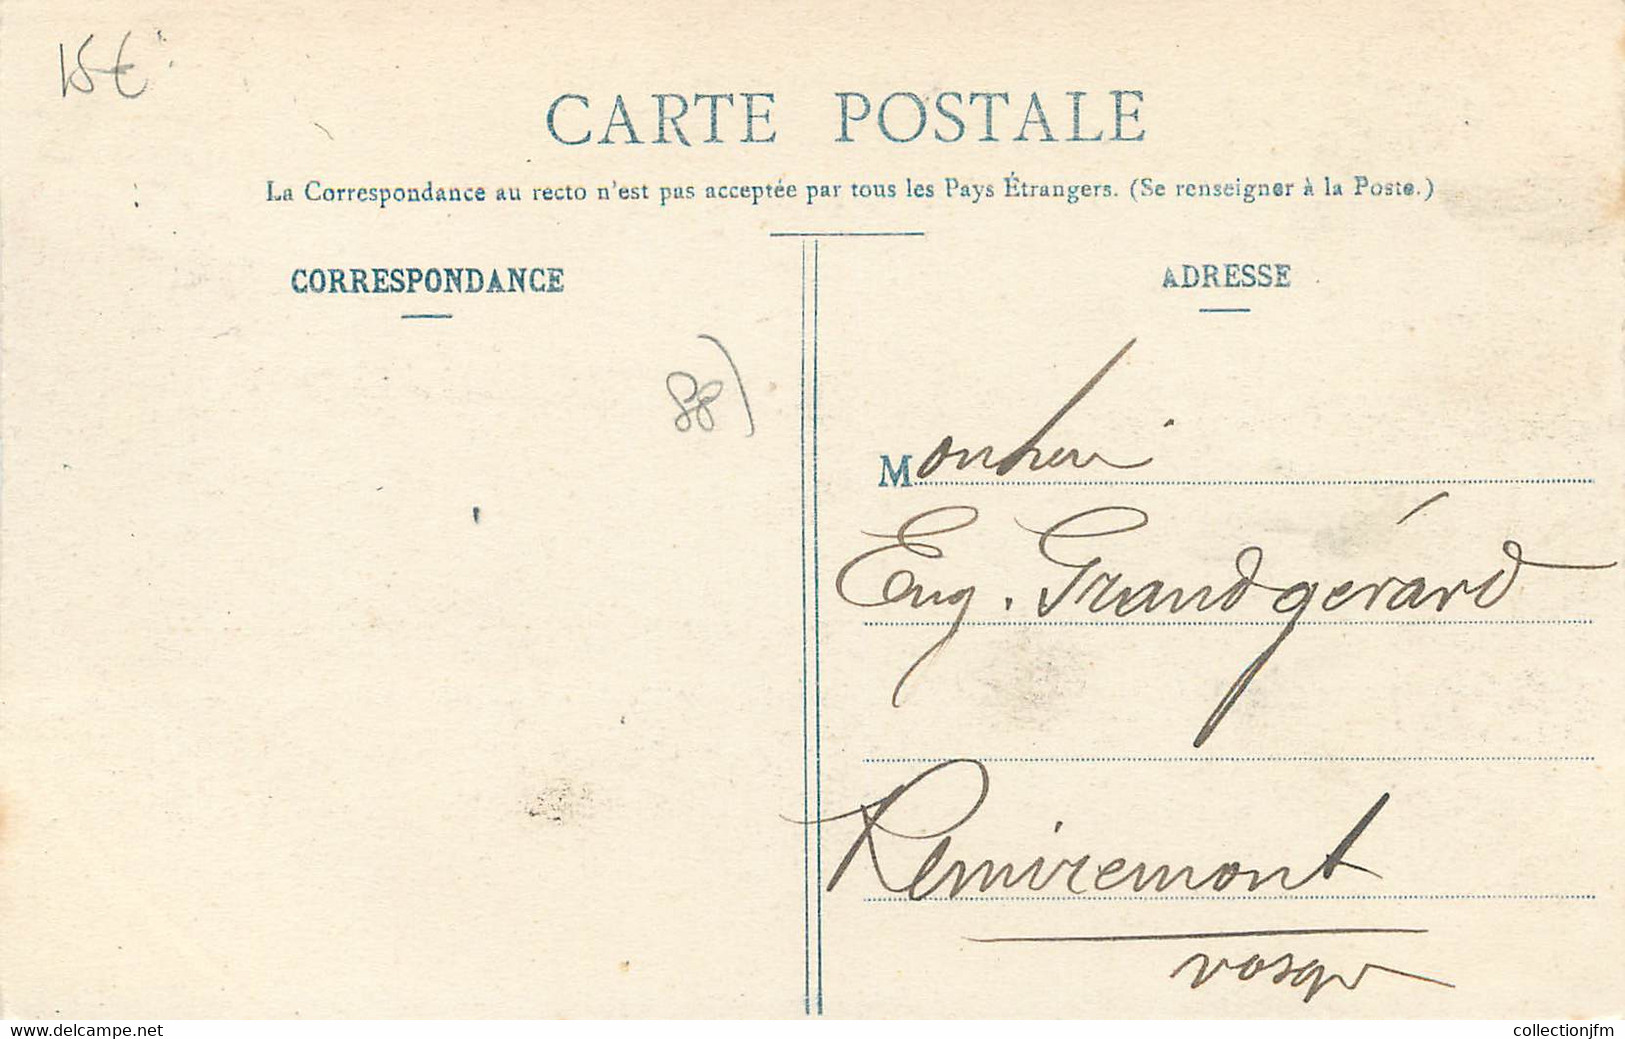 15€
CARTE POSTALE
La Correspondance au recto n'est pas acceptée par tous les Pays Étrangers. (Se renseigner à la Poste.)
CORRESPONDANCE
88)
ADRESSE
Monsieur
Eug. Grandgérard
Remiremont
Vosges
www.delcampe.net
collectionjfm